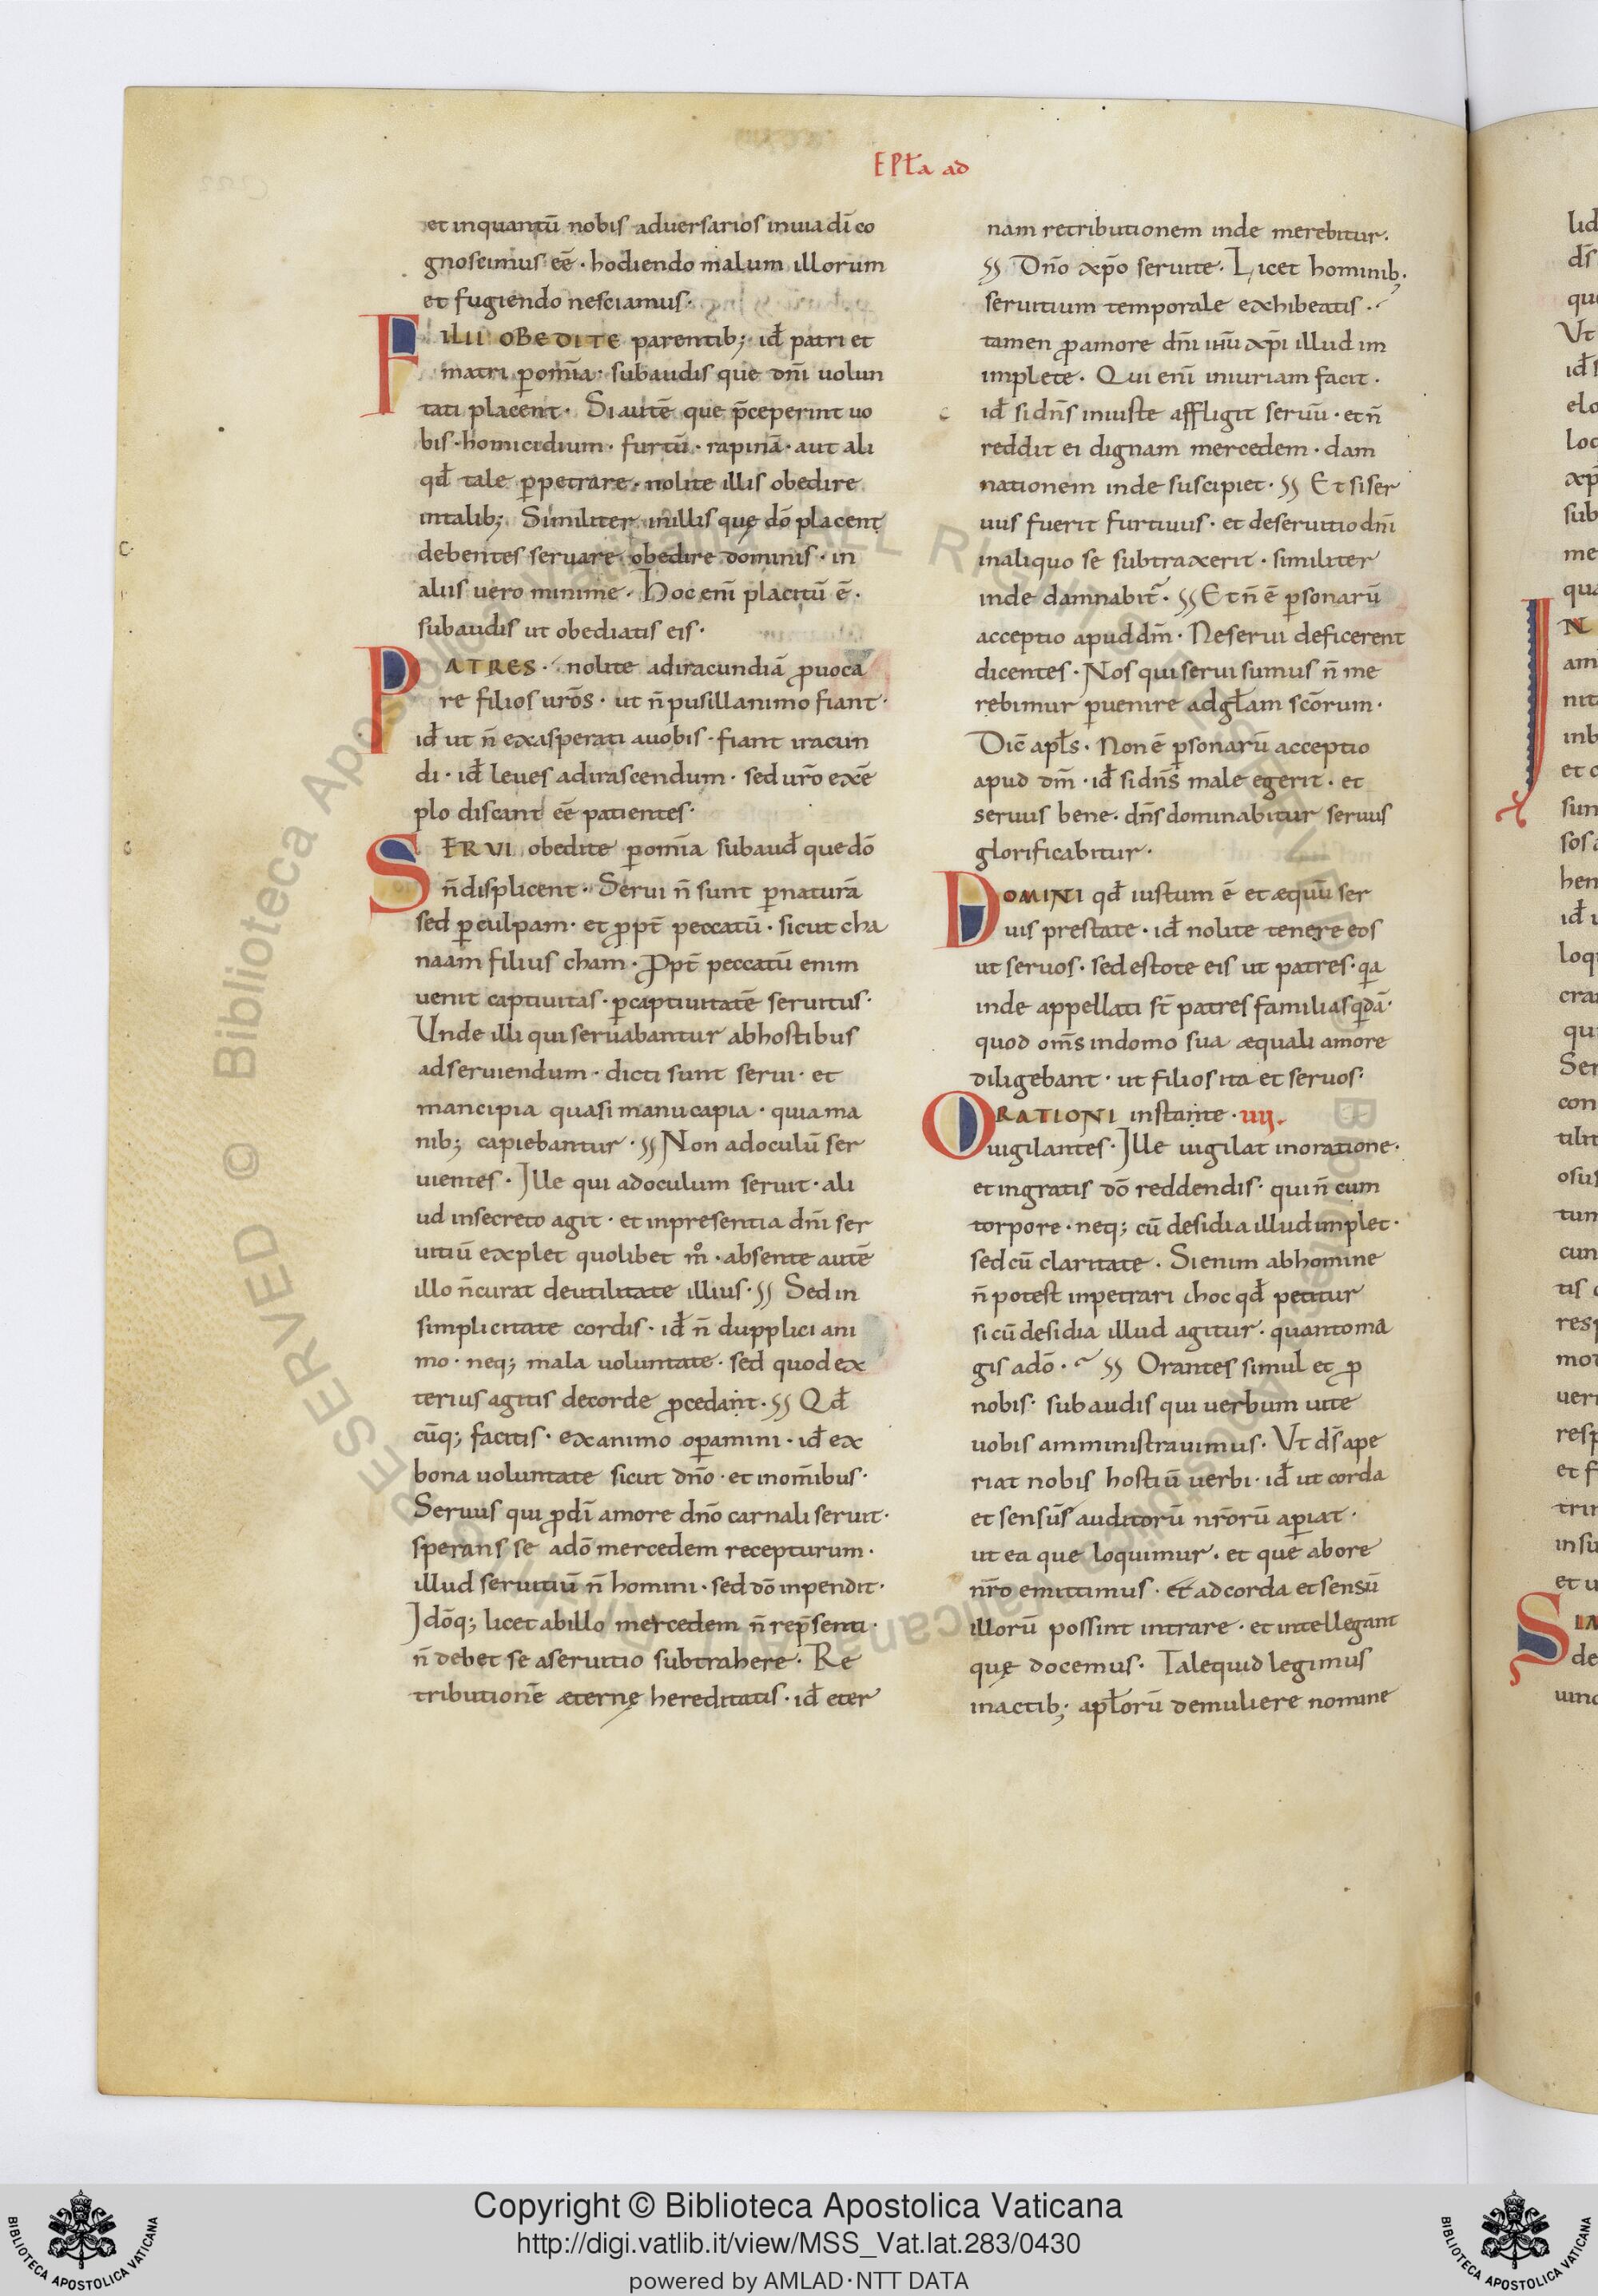 EPl̄a ad
et inquantū nobis adversarios inuia dī co
gnoscimus eē · hodiendo malum illorum
et fugiendo nesciamus·
FILII OBEDITE parentib; id̄ patri et
matri p̱ om̄ia· subaudis que dn̄i uolun
tati placent· Si autē que p̄ceperint uo
bis · homicidium · furtū · rapinā · aut ali
qd̄ tale p̱petrare · nolite illis obedire
intalib; Similiter inillis quę dō placent
debentes servare obedire dominis · in
aliis uero minime · Hoc enī placitū ē ·
subaudis ut obediatis eis·
PATRES · nolite adiracundiā ꝓuoca
re filios urōs · ut n̄ pusillanimo fiant·
id̄ ut n̄ exasperati auobis · fiant iracun
di · id̄ leues adirascendum · sed urō exē
plo discant eē patientes·
SERVI obedite p̱ om̄ia subaud̄ que dō
n̄ displicent· Serui n̄ sunt p̱ naturā
sed p̱ culpam · et ꝓpt̄ peccatū · sicut cha
naam filius cham · Ꝓpt̄ peccatū enim
uenit captiuitas · p̱captiuitatē seruitus·
Unde illi qui seruabantur abhostibus
adseruiendum · dicti sunt serui · et
mancipia quasi manucapia · quia ma
nib; capiebantur · §§ Non adoculū ser
uientes · Ille qui adoculum seruit · ali
ud insecreto agit · et inpresentia dn̄i ser
uitiū explet quolibet mͦ · absente autē
illo n̄ curat deutilitate illius · §§ Sed in
simplicitate cordis · id̄ n̄ dupplici ani
mo · neq; mala uoluntate · sed quod ex
terius agitis decorde ꝓcedant · §§ Qd̄
cūq; facitis · exanimo op̱amini · id̄ ex
bona uoluntate sicut dnō · et inom̄ibus·
Seruus qui ꝓ dī amore dnō carnali seruit·
sperans se adō mercedem recepturum·
illud seruitiū n̄ homini · sed dō inpendit·
Idōq; licet abillo mercedem n̄ rep̄senti·
n̄ debet se aseruitio subtrahere · Re
tributionē æternę hereditatis · id̄ eter
nam retributionem inde merebitur·
§§ Dnō xp̄o seruite · Licet hominib;
seruitium temporale exhibeatis ·
tamen ꝓ amore dn̄i ihū xp̄i illud im
implete · Qui enī iniuriam facit ·
id̄ si dn̄s iniuste affligit seruū · et n̄
reddit ei dignam mercedem · dam
nationem inde suscipiet · §§ Et si ser
uus fuerit furtiuus · et deseruitio dn̄i
inaliquo se subtraxerit · similiter
inde damnabit᷑ · §§ Et n̄ ē p̱sonarū
acceptio apud dm̄ · Ne serui deficerent
dicentes · Nos qui serui sumus n̄ me
rebimur p̱uenire adgl̄am scōrum·
Dic̄ apl̄s · Non ē p̱sonarū acceptio
apud dm̄ · id̄ si dn̄s male egerit · et
seruus bene · dn̄s dominabitur seruus
glorificabitur·
DOMINI qd̄ iustum ē et æquū ser
uis prestate · id̄ nolite tenere eos
ut seruos · sed estote eis ut patres · qa
inde appellati st̄ patres familias qdā·
quod om̄s indomo sua æquali amore
diligebant · ut filios ita et seruos·
ORATIONI instante · iiij.
uigilantes · Ille uigilat inoratione·
et ingratis dō reddendis · qui n̄ cum
torpore · neq; cū desidia illud implet·
sed cū claritate · Si enim abhomine
n̄ potest inpetrari hoc qd̄ petitur
si cū desidia illud agitur · quanto ma
gis adō · §§ Orantes simul et ꝓ
nobis · subaudis qui uerbum uite
uobis amministrauimus · Ut ds̄ ape
riat nobis hostiū uerbi · id̄ ut corda
et sensūs auditorū nr̄orū ap̱iat·
ut ea que loquimur · et que abore
nr̄o emittimus · et adcorda et sensū
illorū possint intrare · et intellegant
quę docemus · Tale quid legimus
inactib; apl̄orū demuliere nomine
Copyright © Biblioteca Apostolica Vaticana
http://digi.vatlib.it/view/MSS_Vat.lat.283/0430
powered by AMLAD·NTT DATA
BIBLIOTECA APOSTOLICA VATICANA
BIBLIOTECA APOSTOLICA VATICANA